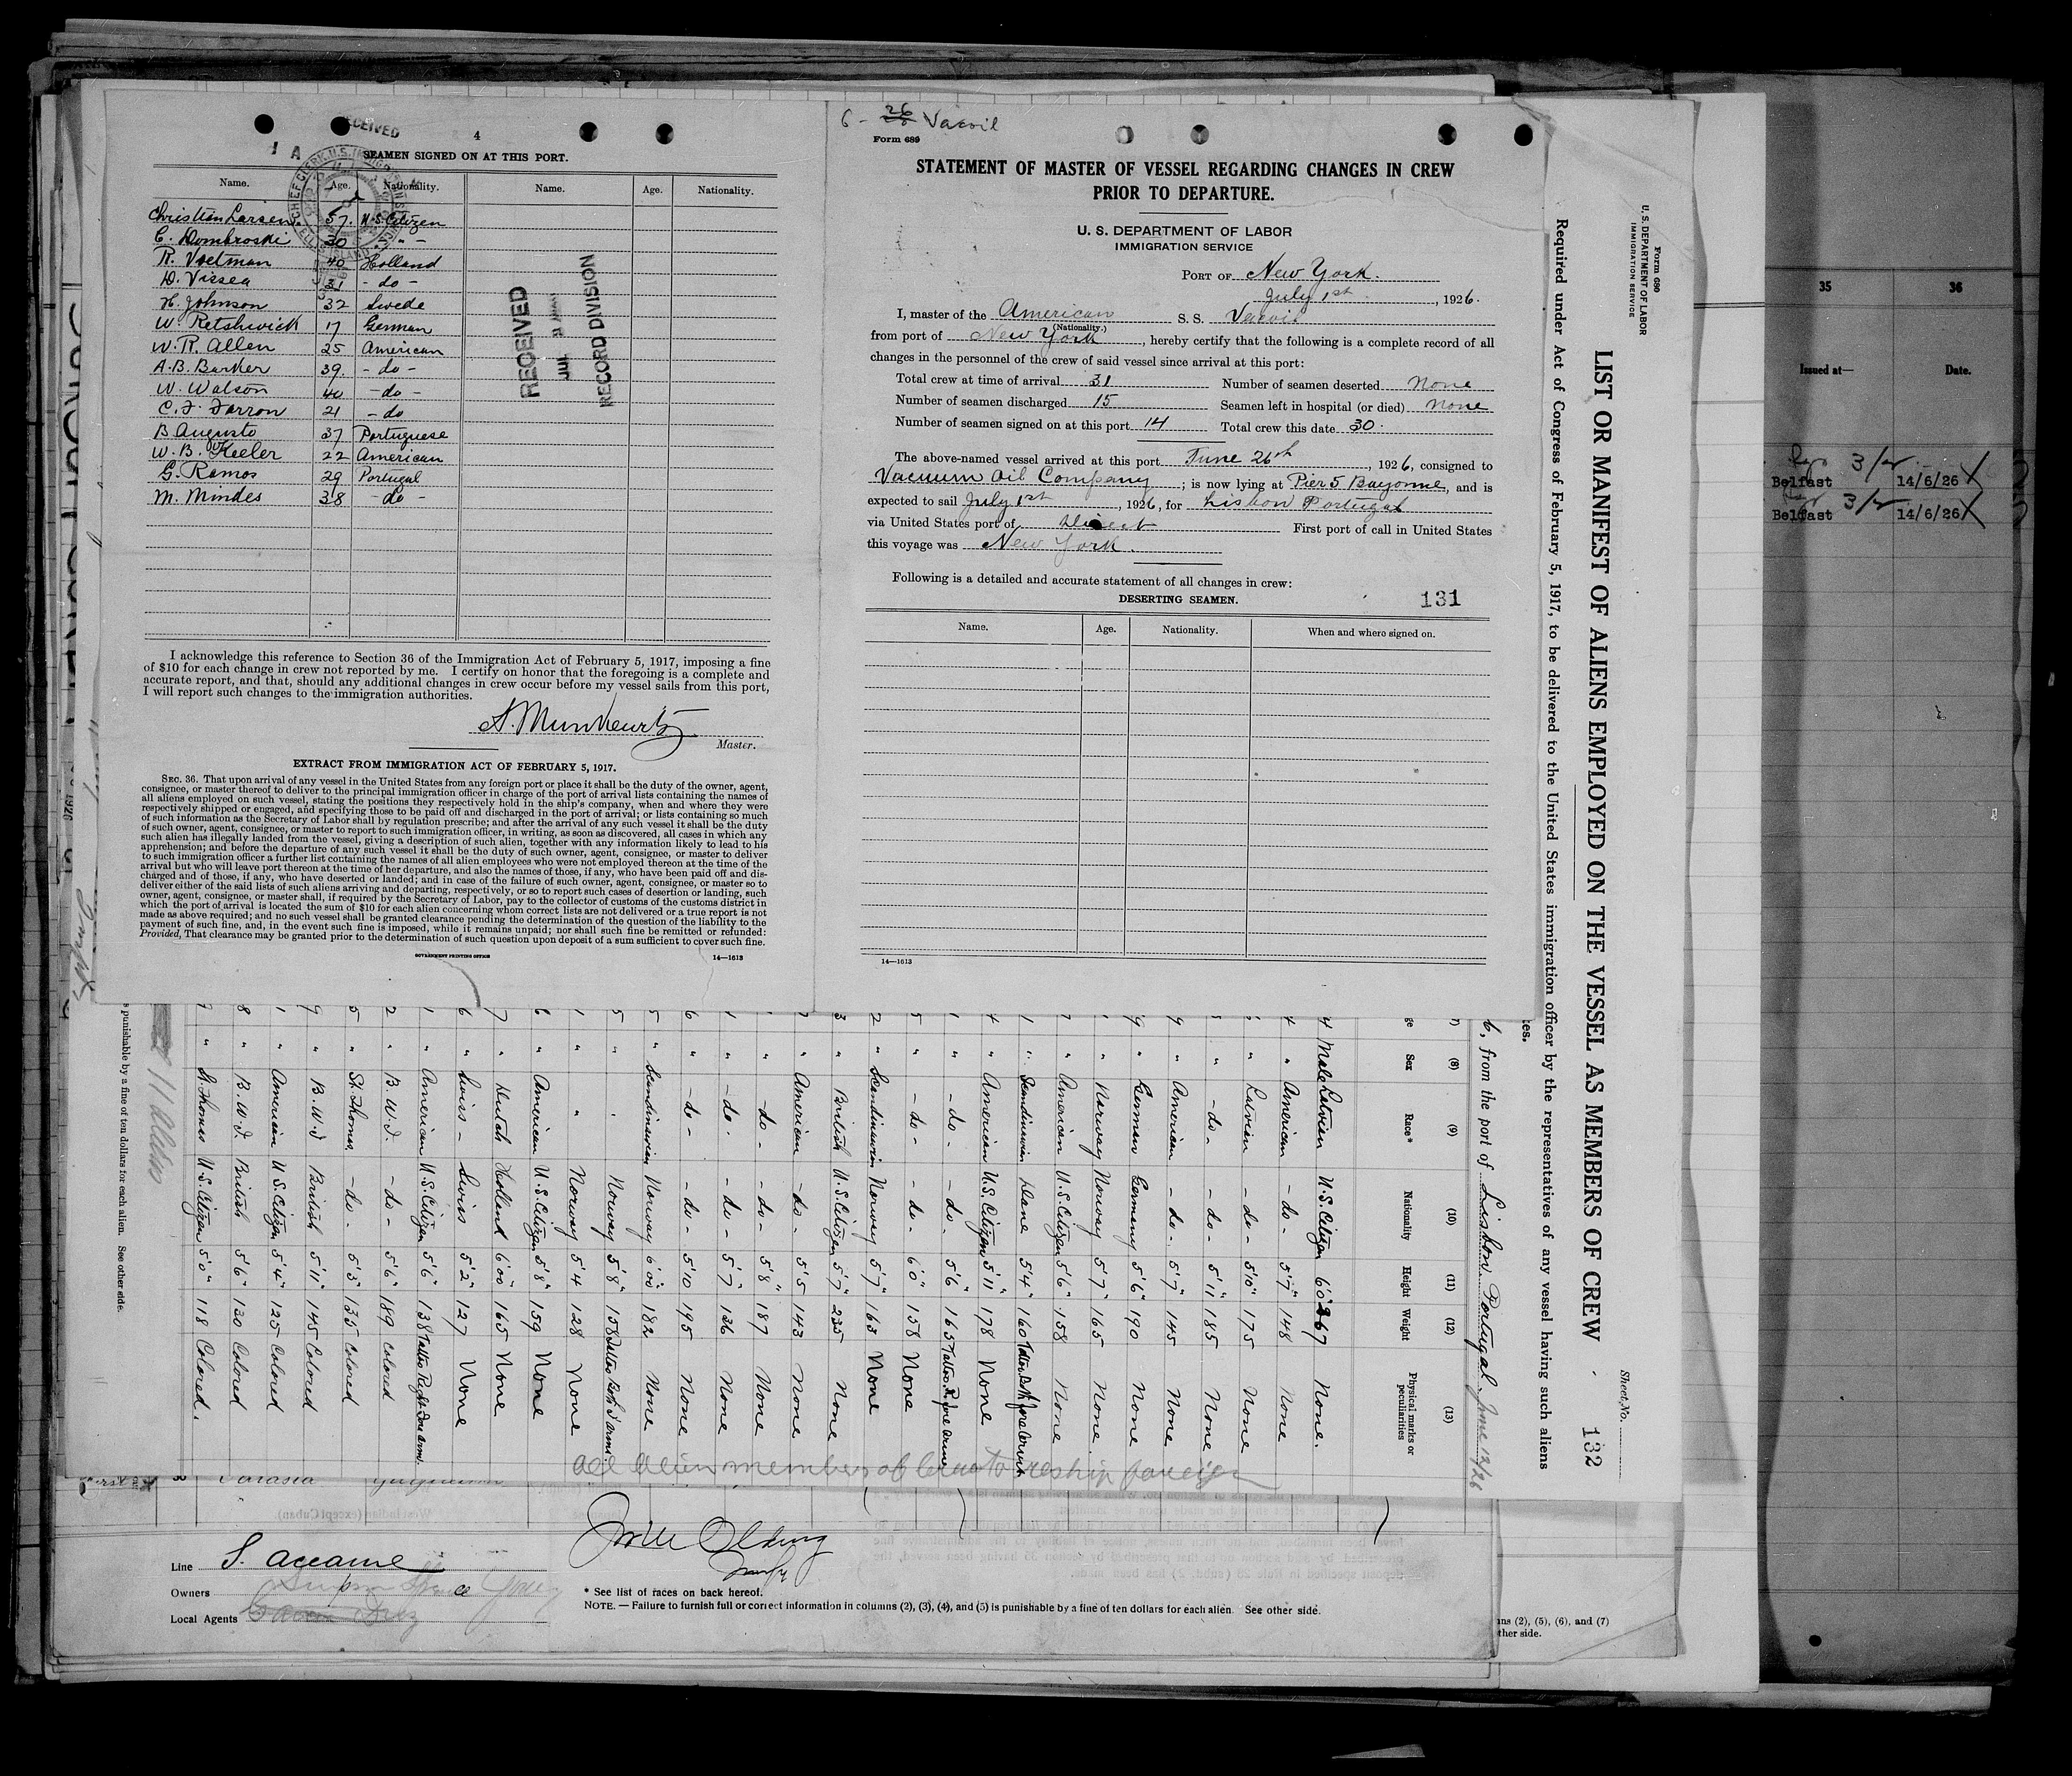 4
RECEIVED
1 A
SEAMEN SIGNED ON AT THIS PORT.
Name. Age. Nationality. Name. Age. Nationality.
Christian Larsen 57. U.S. Citizen
C. Dombroski 30 " -
R. Voetman 40 Holland
D. Vissea 31 - do -
H. Johnson 32 Swede
W. Retshwick 17 German
W. R. Allen 25 American
A. B. Barker 39. - do -
W. Watson 40 - do -
C. F. Farron 21 - do
B Augusto 37 Portuguese
W. B. Keeler 22 American
G. Ramos 29 Portugal
M. Mindes 38 - do -
RECEIVED
RECORD DIVISION
I acknowledge this reference to Section 36 of the Immigration Act of February 5, 1917, imposing a fine
of $10 for each change in crew not reported by me. I certify on honor that the foregoing is a complete and
accurate report, and that, should any additional changes in crew occur before my vessel sails from this port,
I will report such changes to the immigration authorities.
Master.
EXTRACT FROM IMMIGRATION ACT OF FEBRUARY 5, 1917.
SEC. 36. That upon arrival of any vessel in the United States from any foreign port or place it shall be the duty of the owner, agent,
consignee, or master thereof to deliver to the principal immigration officer in charge of the port of arrival lists containing the names of
all aliens employed on such vessel, stating the positions they respectively hold in the ship's company, when and where they were
respectively shipped or engaged, and specifying those to be paid off and discharged in the port of arrival; or lists containing so much
of such information as the Secretary of Labor shall by regulation prescribe; and after the arrival of any such vessel it shall be the duty
of such owner, agent, consignee, or master to report to such immigration officer, in writing, as soon as discovered, all cases in which any
such alien has illegally landed from the vessel, giving a description of such alien, together with any information likely to lead to his
apprehension; and before the departure of any such vessel it shall be the duty of such owner, agent, consignee, or master to deliver
to such immigration officer a further list containing the names of all alien employees who were not employed thereon at the time of the
arrival but who will leave port thereon at the time of her departure, and also the names of those, if any, who have been paid off and dis-
charged and of those, if any, who have deserted or landed; and in case of the failure of such owner, agent, consignee, or master so to
deliver either of the said lists of such aliens arriving and departing, respectively, or so to report such cases of desertion or landing, such
owner, agent, consignee, or master shall, if required by the Secretary of Labor, pay to the collector of customs of the customs district in
which the port of arrival is located the sum of $10 for each alien concerning whom correct lists are not delivered or a true report is not
made as above required; and no such vessel shall be granted clearance pending the determination of the question of the liability to the
payment of such fine, and, in the event such fine is imposed, while it remains unpaid; nor shall such fine be remitted or refunded:
Provided, That clearance may be granted prior to the determination of such question upon deposit of a sum sufficient to cover such fine.
GOVERNMENT PRINTING OFFICE 14—1613
6 - 26 Vacoil
Form 689
STATEMENT OF MASTER OF VESSEL REGARDING CHANGES IN CREW
PRIOR TO DEPARTURE.
U. S. DEPARTMENT OF LABOR
IMMIGRATION SERVICE
PORT OF New York.
July 1st, 1926.
I, master of the American S. S. Vacoil
(Nationality.)
from port of New York, hereby certify that the following is a complete record of all
changes in the personnel of the crew of said vessel since arrival at this port:
Total crew at time of arrival 31 Number of seamen deserted None
Number of seamen discharged 15 Seamen left in hospital (or died) None
Number of seamen signed on at this port 14 Total crew this date 30.
The above-named vessel arrived at this port June 26th, 1926, consigned to
Vacuum Oil Company; is now lying at Pier 5 Bayonne, and is
expected to sail July 1st, 1926, for Lisbon Portugal
via United States port of Direct First port of call in United States
this voyage was New York.
Following is a detailed and accurate statement of all changes in crew:
DESERTING SEAMEN. 131
Name. Age. Nationality. When and where signed on.
14—1613
Form 680
U. S. DEPARTMENT OF LABOR
IMMIGRATION SERVICE
Sheet No.
LIST OR MANIFEST OF ALIENS EMPLOYED ON THE VESSEL AS MEMBERS OF CREW 132
Required under Act of Congress of February 5, 1917, to be delivered to the United States immigration officer by the representatives of any vessel having such aliens
tes.
6, from the port of Lisbon Portugal June 12/26
7) (8) (9) (10) (11) (12) (13)
ge Sex Race* Nationality Height Weight Physical marks or peculiarities
4 Male Latvian U.S. Citizen 6'0" 267 None.
4 " American - do - 5'7" 148 None
" Latvian - do - 5'10" 175 None
5 " - do - - do - 5'11" 185 None
9 " American - do - 5'7" 145 None
9 " German Germany 5'6" 190 None
1 " Norway Norway 5'7" 165 None
7 " American U.S. Citizen 5'6" 158 None
1 " Scandinavian Dane 5'4" 160
4 " American U.S. Citizen 5'11" 178 None
1 " - do - - do - 5'6" 165
5 " - do - - do - 6'0" 158 None
2 " Scandinavian Norway 5'7" 163 None
3 " British U.S. Citizen 5'7" 235 None
7 " American - do - 5'5 143 None
" - do - - do - 5'8" 187 None
1 " - do - - do - 5'7" 136 None
6 " - do - - do - 5'10 195 None
5 " Scandinavian Norway 6'00" 182 None
5 " Norway 5'8" 158
1 " " Norway 5'4 128 None
6 " American U.S. Citizen 5'8" 159 None
7 " Dutch Holland 6'00" 165 None
6 " Swiss - Swiss 5'2" 127 None
1 " American U.S. Citizen 5'6" 138 Tattoo Right
2 " B.W.I. - do - 5'6" 189 Colored
5 " St. Thomas - do - 5'5" 135 Colored
9 " B.W.I British 5'11" 145 Colored
1 " American U.S. Citizen 5'4" 125 Colored
8 " B.W.I. British 5'6" 130 Colored
7 " St. Thomas U.S. Citizen 5'0" 118 Colored.
11 Aliens
punishable by a fine of ten dollars for each alien. See other side.
all alien members of Crew to reship foreign
Line
Owners
Local Agents
* See list of races on back hereof.
NOTE. — Failure to furnish full or correct information in columns (2), (3), (4), and (5) is punishable by a fine of ten dollars for each alien. See other side.
ns (2), (5), (6), and (7)
ther side.
35 36
Issued at— Date.
Belfast 14/6/26
Belfast 14/6/26